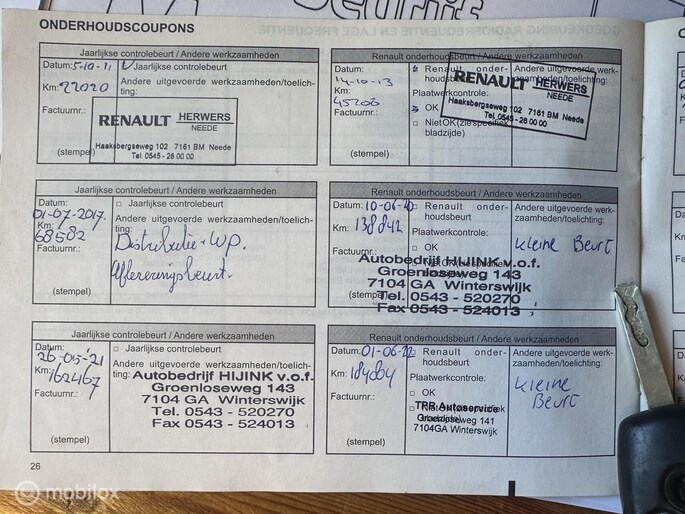 ONDERHOUDSCOUPONS
Jaarlijkse controlebeurt / Andere werkzaamheden
Datum: 5-10-11 Jaarlijkse controlebeurt
Km: 22020 Andere uitgevoerde werkzaamheden/toelich-
ting:
Factuurnr.:
RENAULT HERWERS
NEEDE
Haaksbergseweg 102 7161 BM Neede
Tel. 0545 - 28 00 00
(stempel)
Renault onderhoudsbeurt / Andere werkzaamheden
Datum: 14-10-13 Renault onder-
houdsbeurt
Km: 45266
Plaatwerkcontrole:
OK
Niet OK (zie specifiek
bladzijde)
Factuurnr.:
Andere uitgevoerde werk-
zaamheden/toelichting:
RENAULT HERWERS
NEEDE
Haaksbergseweg 102 7161 BM Neede
Tel. 0545 - 28 00 00
(stempel)
Jaarlijkse controlebeurt / Andere werkzaamheden
Datum: 01-07-2017. Jaarlijkse controlebeurt
Km: 68582 Andere uitgevoerde werkzaamheden/toelich-
ting:
Distributie + W.P.
Factuurnr.:
Afleveringsbeurt.
(stempel)
Renault onderhoudsbeurt / Andere werkzaamheden
Datum: 10-06-20 Renault onder-
houdsbeurt
Km: 138842
Plaatwerkcontrole:
OK
Factuurnr.:
Andere uitgevoerde werk-
zaamheden/toelichting:
Kleine Beurt
Autobedrijf HIJINK v.o.f.
Groenloseweg 143
7104 GA Winterswijk
Tel. 0543 - 520270
Fax 0543 - 524013
(stempel)
Jaarlijkse controlebeurt / Andere werkzaamheden
Datum: 26-05-'21 Jaarlijkse controlebeurt
Km: 162467 Andere uitgevoerde werkzaamheden/toelich-
ting:
Factuurnr.:
Autobedrijf HIJINK v.o.f.
Groenloseweg 143
7104 GA Winterswijk
Tel. 0543 - 520270
Fax 0543 - 524013
(stempel)
Renault onderhoudsbeurt / Andere werkzaamheden
Datum: 01-06-22 Renault onder-
houdsbeurt
Km: 184084
Plaatwerkcontrole:
OK
Factuurnr.:
Andere uitgevoerde werk-
zaamheden/toelichting:
Kleine
Beurt
TRR Autoservice
Groenloseweg 141
7104GA Winterswijk
(stempel)
26
mobilox